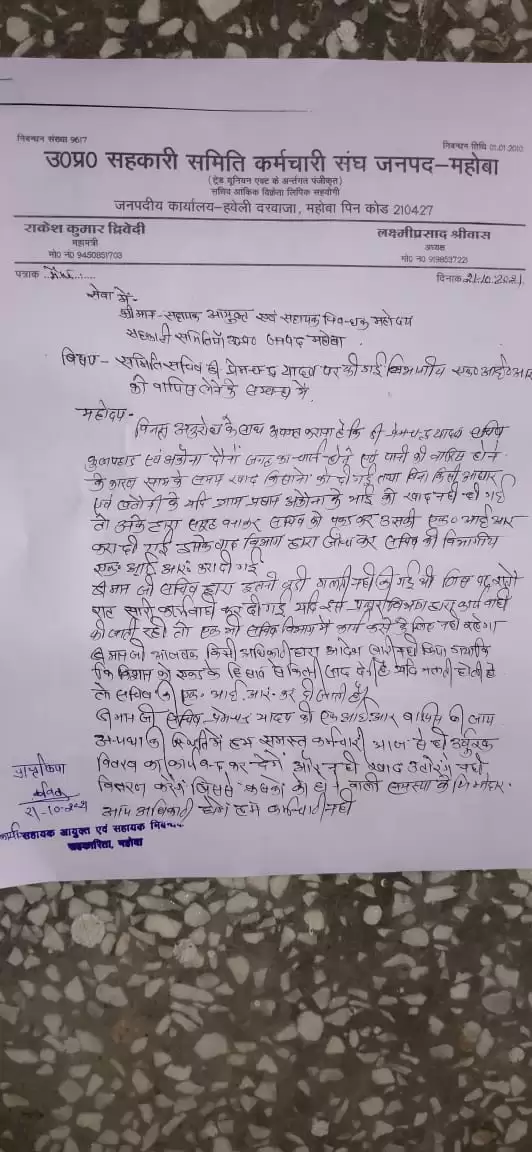 निबन्धन संख्या 9617
निबन्धन तिथि 01.01.2010
उ0प्र0 सहकारी समिति कर्मचारी संघ जनपद-महोबा
(ट्रेड यूनियन एक्ट के अर्न्तगत पंजीकृत)
सचिव आंकिक विक्रेता लिपिक सहयोगी
जनपदीय कार्यालय-हवेली दरवाजा, महोबा पिन कोड 210427
राकेश कुमार द्विवेदी
महामंत्री
मो0 न0 9450851703
लक्ष्मीप्रसाद श्रीवास
अध्यक्ष
मो0 न0 9198537223
पत्रांक
दिनांक 21.10.2021
सेवा में-
श्रीमान-सहायक आयुक्त एवं सहायक निबन्धक महोदय
सहकारी समितियाँ उ०प्र० जनपद महोबा
विषय- समिति सचिव श्री प्रेमचन्द्र यादव पर की गई विभागीय एफ०आई०आर
को वापिस लेने के सम्बन्ध में
महोदय-
विनम्र अनुरोध के साथ अवगत कराना है कि श्री प्रेमचन्द्र यादव सचिव
कुलपहाड़ एवं अकौना दोनों जगह का चार्ज होने एवं पानी की बारिश होने
के कारण शाम के समय खाद किसानों को दी गई तथा बिना किसी आधार
एवं खतौनी के यदि ग्राम प्रधान अकौना के भाई को खाद नहीं दी गई
तो उनके द्वारा समूह बनाकर सचिव को पकड़कर उसकी एफ० आई आर
करा दी गई इसके बाद विभाग द्वारा सचिव की विभागीय
एफ० आई आर० करा दी गई
श्रीमान जी सचिव द्वारा इतनी बड़ी गलती नहीं की गई थी जिस पर
सारी कार्यवाही कर दी गई यदि इस प्रकार विभाग द्वारा कार्यवाही
की जाती रही तो एक भी सचिव विभाग में कार्य करने के लिए नहीं बचेगा
श्रीमान जी आजतक किसी अधिकारी द्वारा आदेश जारी नहीं किया गया
कि किसान को एकड़ के हिसाब से कितनी खाद देनी है यदि गलती होती है
तो सचिव की एफ० आई. आर. कर दी जाती है।
श्रीमान जी सचिव प्रेमचन्द्र यादव की एफ आई आर वापिस ली जाय
अन्यथा की स्थिति में हम समस्त कर्मचारी आज से ही उर्वरक
वितरण का कार्य बन्द कर देंगे और नहीं खाद उतारेंगे नहीं
वितरण करेंगे जिससे कृषकों को होने वाली समस्या के जिम्मेदार
आप अधिकारी होंगे हम कर्मचारी नहीं
प्राप्त किया
21-10-2021
सहायक आयुक्त एवं सहायक निबन्धक
सहकारिता, महोबा